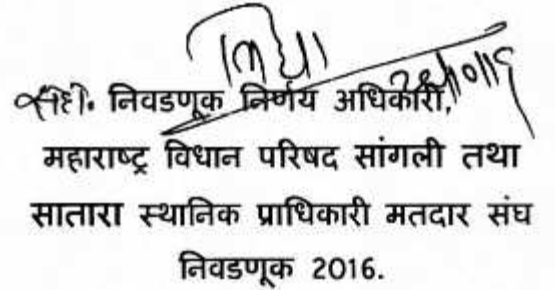 सहा. निवडणूक निर्णय अधिकारी,
महाराष्ट्र विधान परिषद सांगली तथा
सातारा स्थानिक प्राधिकारी मतदार संघ
निवडणूक 2016.